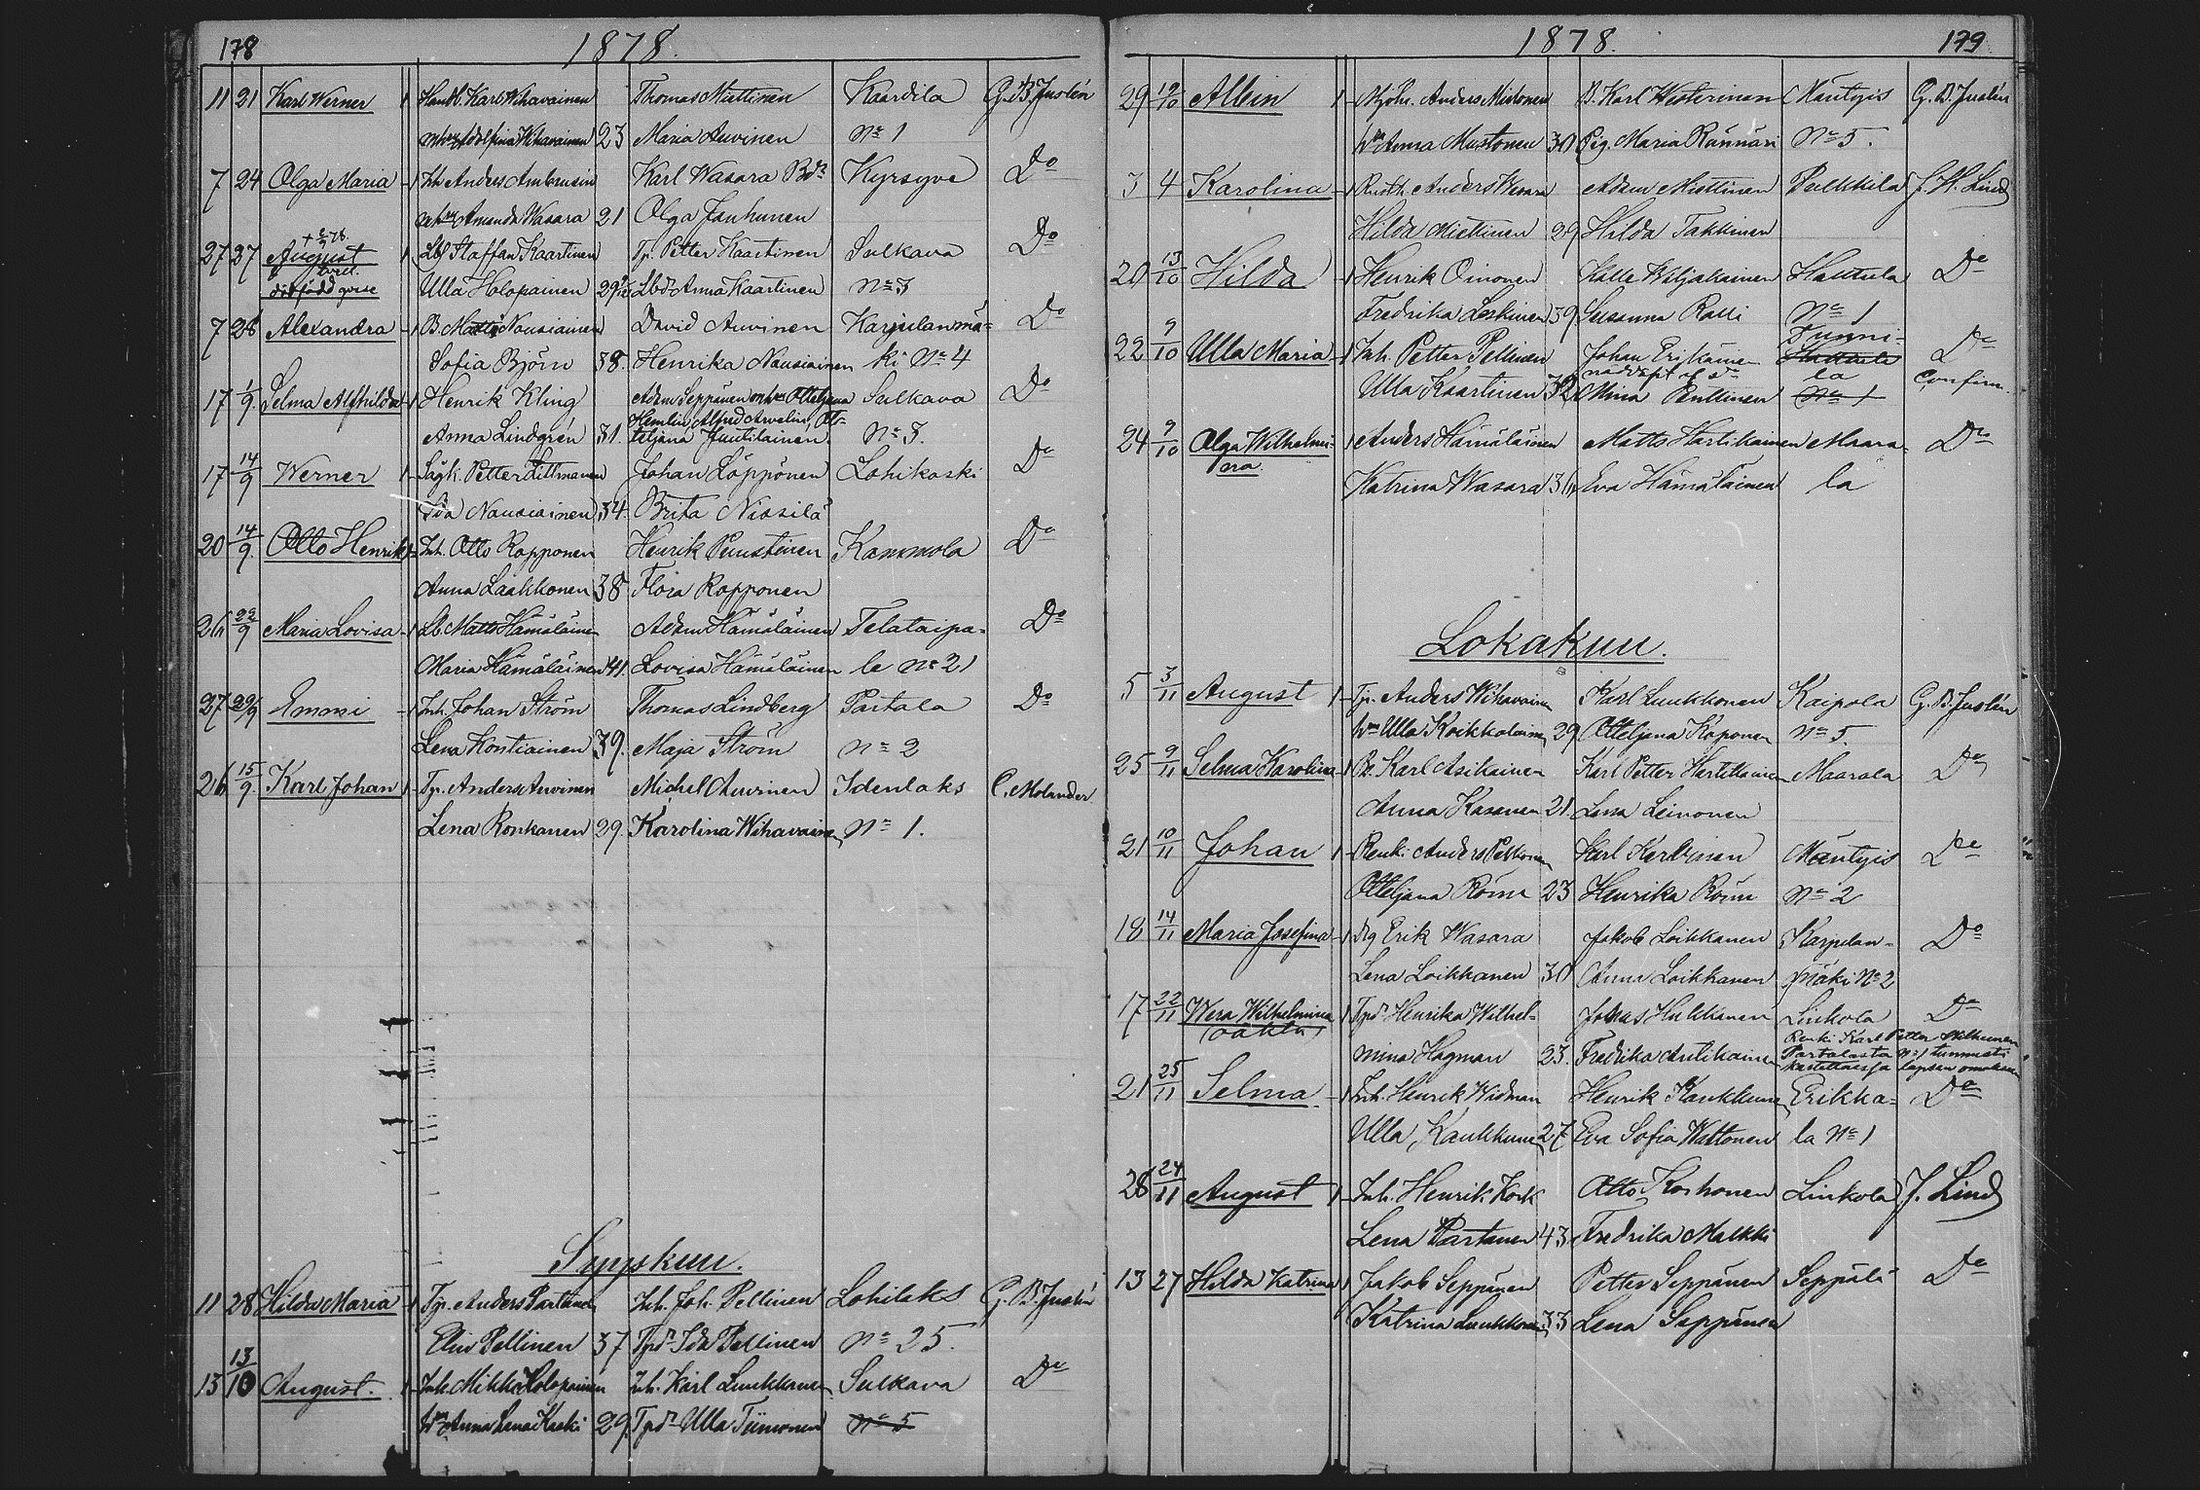 178 1878.
11 21 Karl Werner 1 Handl. Karl Wihavainen Thomas Miettinen Kaardila G. B. Juslén
Adolfina Wihavainen 23 Maria Auvinen No 1
7 24 Olga Maria 1 Inh Anders Ambrusin Karl Wasara Kyrsyve Do
Amanda Wasara 21 Olga Jauhunen
27 27 August 1 Lbf Staffan Kaartinen Tp. Petter Kaartinen Sulkava Do
dödfödd gosse Ulla Holopainen 29 Anna Kaartinen No 3
7 28 Alexandra 1 B. Matts Nousiainen David Auvinen Karjulanmä= Do
Sofia Björn 38. Henrika Nousiainen ki No 4
17 1/9. Selma Alfhilda 1 Henrik Kling Adam Seppänen Otteljana Sulkava Do
Hemlin, Alfred Arvelin, Ot-
Anna Lindgrén 31. teljana Huutilainen No 3.
17 14/9 Werner 1 Petter Littmanen Johan Löppönen Lohikoski Do
Ida Nousiainen 34. Brita Nissilä
20 14/9. Otto Henrik 1 Inh. Otto Ropponen Henrik Puustinen Kammola Do
Anna Laakkonen 38 Ropponen
26 22/9 Maria Lovisa 1 Lb. Matts Hämäläinen Adam Hämäläinen Telataipa= Do
Maria Hämäläinen 41. Lovisa Hämäläinen le No 21
27 29/9 Emmi 1 Inh. Johan Ström Thomas Lindberg Partala Do
Lena Kontiainen 39. Maja Ström No 2
26 15/9. Karl Johan 1 Tp. Anders Auvinen Michel Auvinen Idenlaks C. Molander
Lena Ronkanen 29. Karolina Wihavainen No 1.
Syyskuu.
11 28 Hilda Maria 1 Tp. Anders Partanen Inh. Joh. Pellinen Lohilaks G. B. Juslén
Elin Pellinen 37 Ida Pellinen No 25.
13 13/10 August. 1 Inh. Mikko Holopainen Inh. Karl Luukkanen Sulkava Do
Anna Lena Kaski 29. Ulla Tiimonen No 5
1878. 179
29 19/10 Albin 1 Anders Mustonen B. Karl Westerinen Mäntyis G. B. Juslén
Anna Mustonen 30 Pig. Maria Rännäri No 5.
3 4 Karolina 1 Anders Wasara Adam Miettinen Pulkkila J. H. Lind
Hilda Miettinen 29 Hilda Takkinen
20 13/10 Hilda 1 Henrik Oinonen Kalle Wiljakainen Halttula Do
Fredrika Leskinen 39 Susanna Ralli No 1
22 9/10 Ulla Maria 1 Inh. Petter Pellinen Johan Erikäinen Tunni- Do
la Confirm.
Ulla Kaartinen 32 Mina Penttinen No 1
24 9/10 Olga Wilhelmi- 1 Anders Hämäläinen Matts Hartikainen Maara- Do
na.
Katrina Wasara 36 Eva Hämäläinen la
Lokakuu.
5 3/11 August 1 Tp. Anders Wihavainen Karl Luukkonen Kaipola G. B. Juslén
Ulla Koikkalainen 29 Otteljana Koponen No 5.
25 9/11 Selma Karolina 1 Karl Asikainen Karl Petter Hartikainen Maarala Do
Anna Kasanen 21. Lena Leinonen
21 10/11 Johan 1 Renki Anders Pekkonen Karl Mäntyis Do
Otteljana Röm 23 Henrika Röm No 2
18 14/11 Maria Josefina 1 Erik Wasara Jakob Loikkanen Karjulan- Do
Lena Loikkanen 30 Anna Loikkanen mäki No 2
17 22/11 Wera Wilhelmina 1 Henrika Wilhel- Johan Hulkkanen Linkola Do
(oäkta) Renki Karl Petter
mina Hagman 23. Fredrika Antikainen Partalasta No 1 tunnusti
kastettaessa lapsen omaksensa
21 25/11 Selma 1 Inh. Henrik Widman Henrik Kaukkunen Erikka- Do
Ulla Kaukkunen 27 Eva Sofia Wattonen la No 1
28 24/11 August 1 Inh. Henrik Kock Otto Korhonen Linkola J. Lind
Lena Partanen 43 Fredrika Malkki
13 27 Hilda Katrina 1 Jakob Seppänen Petter Seppänen Seppälä Do
Katrina Luukkonen 33 Lena Seppänen